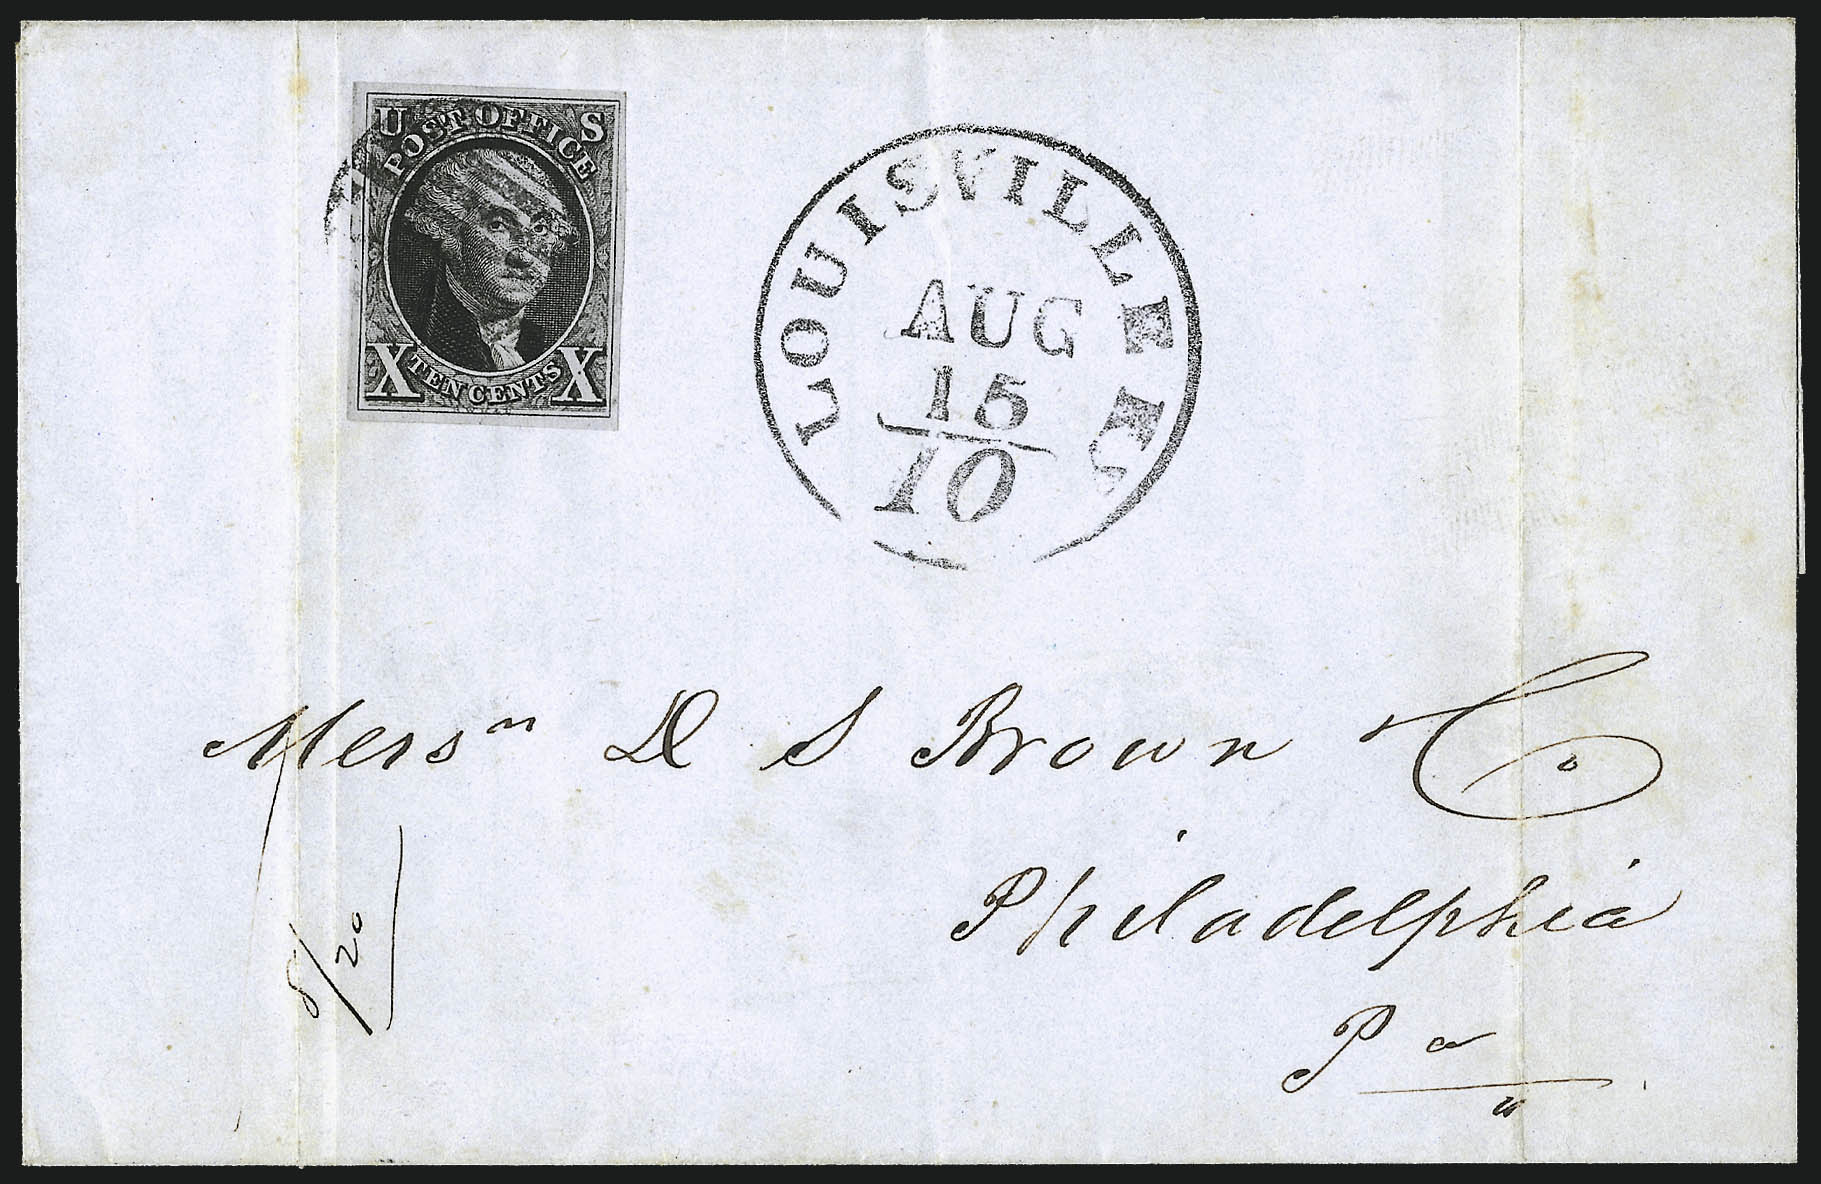 U S
POST OFFICE
X TEN CENTS X
LOUISVILLE Ky
AUG
15
10
Messrs D S Brown Co
Philadelphia
Pa
8/20